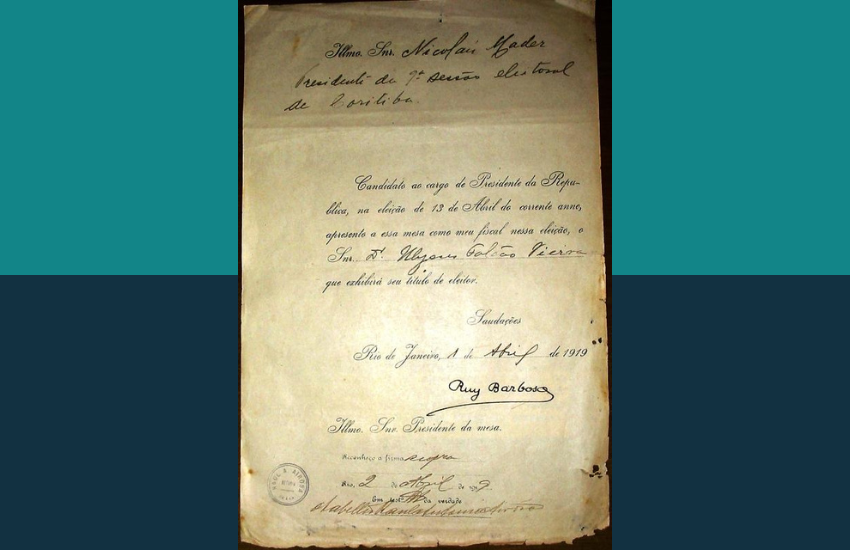 Illmo. Snr. Nicolau Mader
Presidente da 9ª sessão eleitoral
de Coritiba.
Candidato ao cargo de Presidente da Repu-
blica, na eleição de 13 de Abril do corrente anno,
apresento a essa mesa como meu fiscal nessa eleição, o
Snr. Dr. Ulysses Falcão Vieira
que exhibirá seu titulo de eleitor.
Saudações
Rio de Janeiro, 1 de Abril de 1919
Ruy Barbosa
Illmo. Snr. Presidente da mesa.
Reconheço a firma supra
Rio, 2 de Abril de 19
Em da verdade